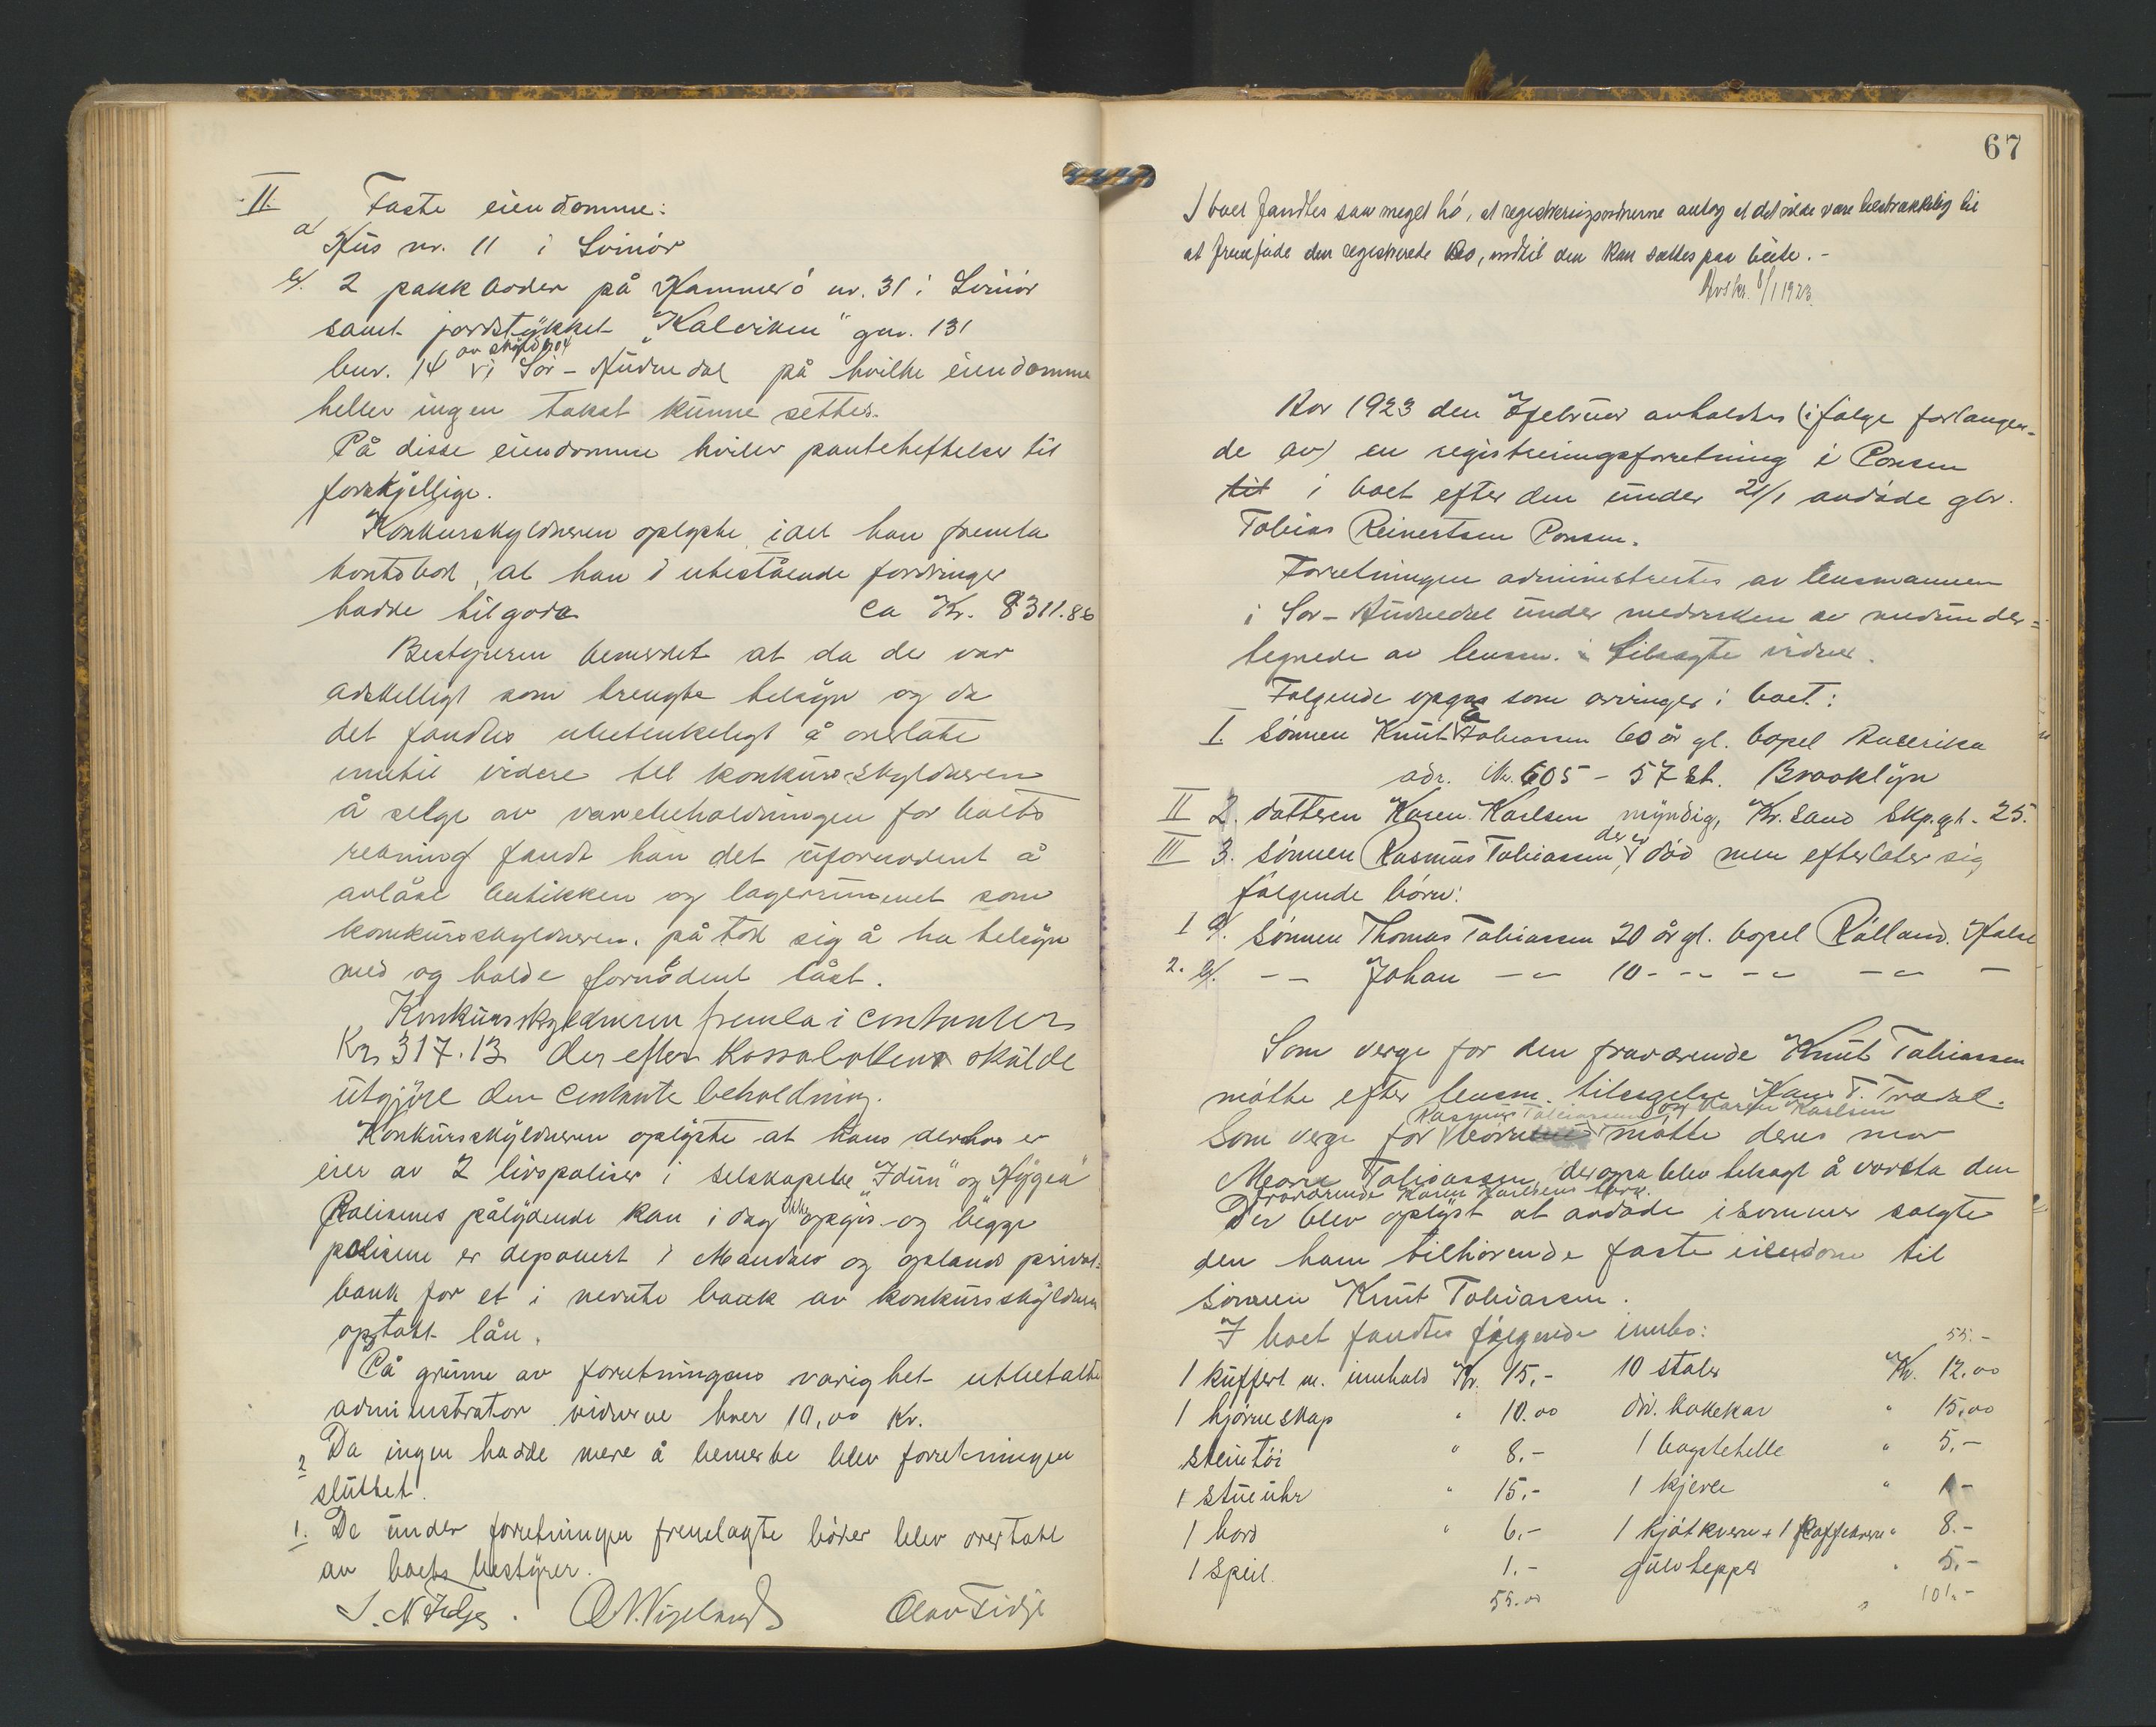 II. Faste eiendomme:
a/ Hus nr. 11 i Svinör
b/. 2 pakkboder på Hammerö nr. 31 i Svinör
samt jordstykket "Kalviken" gnr. 131
bnr. 14 av skyld 0,04 i Sör-Audnedal på hvilke eiendomme
heller ingen takst kunne settes.
På disse eiendomme hviler panteheftelser til
forskjellige.
Konkursskyldneren oplyste, idet han fremla
kontobok, at han i utestående fordringer
hadde tilgode ca Kr. 8311.86
Bestyreren bemerket at da der var
adskilligt som trengte tilsyn og da
det fandtes ubetenkeligt å overlate
inntil videre til konkursskyldneren
å selge av varebeholdningen for boets
regning fandt han det ufornödent å
avlåse butikken og lagerrummet som
konkursskyldneren påtok sig å ha tilsyn
med og holde fornödent låst.
Konkursskyldneren fremla i contanter
Kr 317.13 der efter kassaboken skulde
utgjöre den contante beholdning.
Konkursskyldneren oplyste at hans derhos er
eier av 2 livspoliser i selskapene "Idun" og "Hygea"
Polisenes pålydende kan i dag ikke opgis og begge
polisene er deponert i Mandals og oplands privat-
bank for et i nevnte bank av konkursskyldneren
optatt lån.
På grunn av forretningens varighet utbetalte
administrator vidnene hver 10,00 Kr.
2 Da ingen hadde mere å bemerke blev forretningen
sluttet.
1. De under forretningen fremlagte böker blev overtatt
av boets bestyrer.
S. N. Fidje. O. N. Vigeland Olav Fidje
67
I boet fandtes saa meget hö, at registreringsvidnerne antog at det vilde være tilstrækkelig til
at fremföde den registrerede ko, indtil den kan sættes paa beite. -
Avskr. 8/1 1923.
Aar 1923 den 7 februar avholdtes (ifölge forlangen-
de av) en registreringsforretning i Ponsen
til i boet efter den under 21/1 avdöde gbr.
Tobias Reinertsen Ponsen.
Forretningen administrertes av lensmannen
i Sör-Audnedal under medvirken av medunder=
tegnede av lensm. tilsagte vidner.
Følgende opgas som arvinger i boet:
I. Sönnen Knut Tobiassen 60 år gl. bopel Amerika
adr. Nr. 605 - 57 St. Brooklyn
II 2. datteren Karen Karlsen myndig, Kr.sand Skp.gt. 25.
III 3. sönnen Rasmus Tobiassen, der er död men efterlater sig
fölgende börn:
1 a/. Sönnen Thomas Tobiassen 20 år gl. bopel Rölland. Halse
2. b/. - - Johan - - 10 - - - - - - -
Som verge for den fraværende Knut Tobiassen
mötte efter lensm. tilsigelse Hans T. Tredal.
Som verge for Rasmus Tobiassens börn mötte deres mor og Karen Karlsen
Marie Tobiassen, der ogsa blev tilsagt å vareta den
fraværende Karen Karlsens tarv.
Der blev oplyst at avdöde i sommer solgte
den ham tilhörende faste eiendom til
sönnen Knut Tobiassen.
I boet fandtes følgende innbo:
55.-
1 kuffert m. innhold Kr. 15,- 10 stoler Kr. 12,00
1 hjörneskap " 10.00 div. kokekar " 15,00
Steintöi " 8,- 1 bagstehelle " 5,-
1 stueuhr " 15,- 1 kjevle " 1-
1 bord " 6,- 1 kjötkvern + 1 kaffekvern " 8.-
1 speil. 1.- gulvtepper " 5,-
55.00 " 101.-